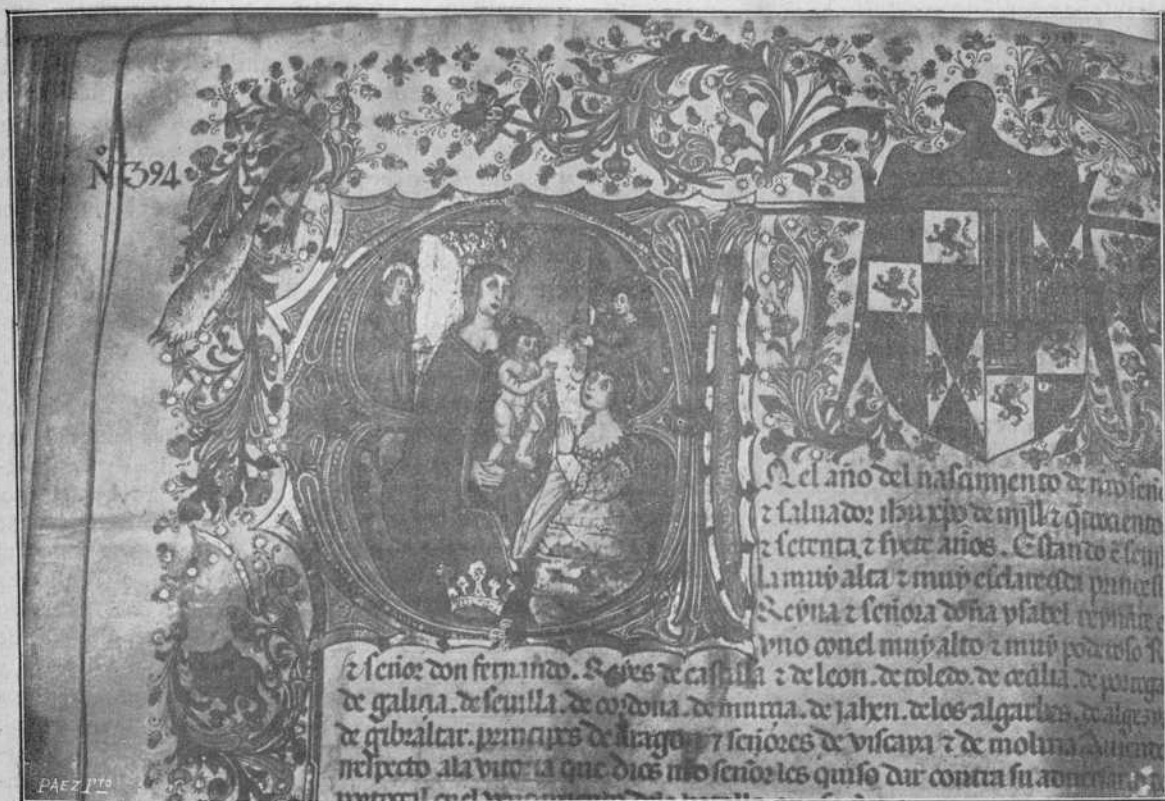 Nº 394
N el año del nascimiento de nro seño
⁊ saluador ihu xpo de mjll ⁊ q̃trocientos
⁊ setenta ⁊ syete años. Estando ẽ seuj
la muy alta ⁊ muy esclarecida princesa
Reyna ⁊ señora doña ysabel reynãte
vno conel muy alto ⁊ muy poderoso R
⁊ señor don fernando. Reyes de castilla ⁊ de leon. de toledo. de cecilia. de portogal
de galizia. de seuilla. de cordoua. de murcia. de jahen. delos algarbes. de algezira
de gibraltar. principes de Aragon ⁊ señores de viscaya ⁊ de molina.
respecto ala vitoria que dios nro señor les quiso dar contra su aduersario
PAEZ Fᵀᴼ